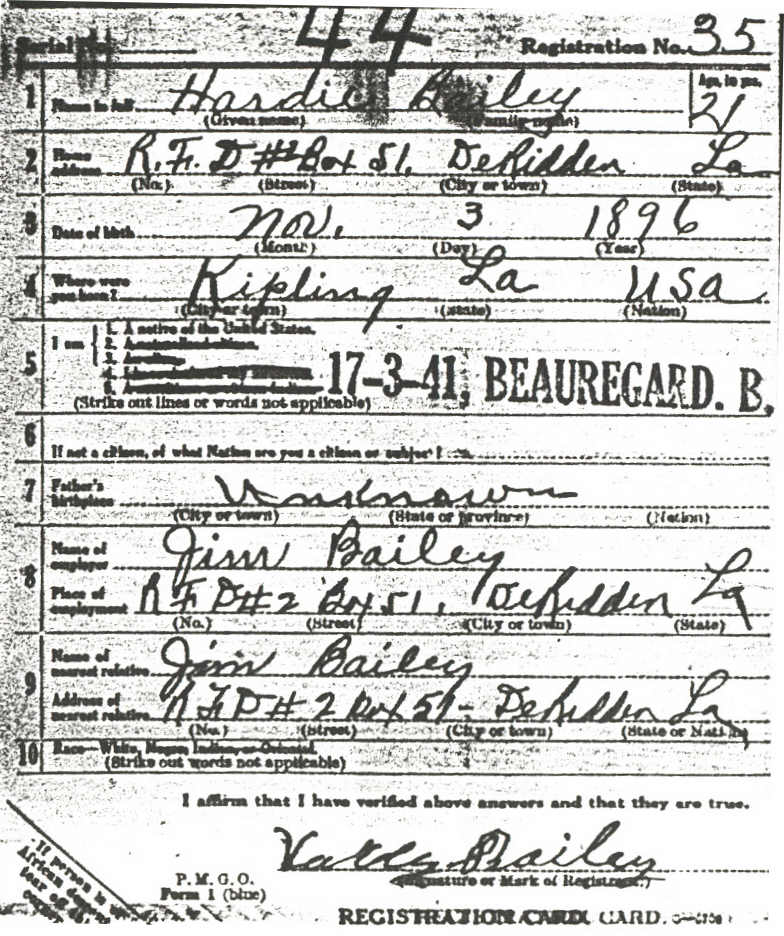 Serial No. 44 Registration No. 35
1 Name in full Hardie Bailey Age, in yrs. 21
(Given name) (Family name)
2 Home address R.F.D #2 Box 51, DeRidder La
(No.) (Street) (City or town) (State)
3 Date of birth Nov. 3 1896
(Month) (Day) (Year)
4 Where were you born? Kipling La USA
(City or town) (State) (Nation)
5 I am 1. A native of the United States.
2.
3.
4.
5.
17-3-41, BEAUREGARD. B,
(Strike out lines or words not applicable)
6
If not a citizen, of what Nation are you a citizen or subject?
7 Father's birthplace Unknown
(City or town) (State or province) (Nation)
8 Name of employer Jim Bailey
Place of employment R F D # 2 Box 51, DeRidder La
(No.) (Street) (City or town) (State)
9 Name of nearest relative Jim Bailey
Address of nearest relative R F D # 2 Box 51- DeRidder La
(No.) (Street) (City or town) (State or Nation)
10 Race—White, Negro, Indian, or Oriental.
(Strike out words not applicable)
I affirm that I have verified above answers and that they are true.
Bailey
(Signature or Mark of Registrant)
P. M. G. O.
Form 1 (blue)
If person is
African
tear off
REGISTRATION CARD. CARD.